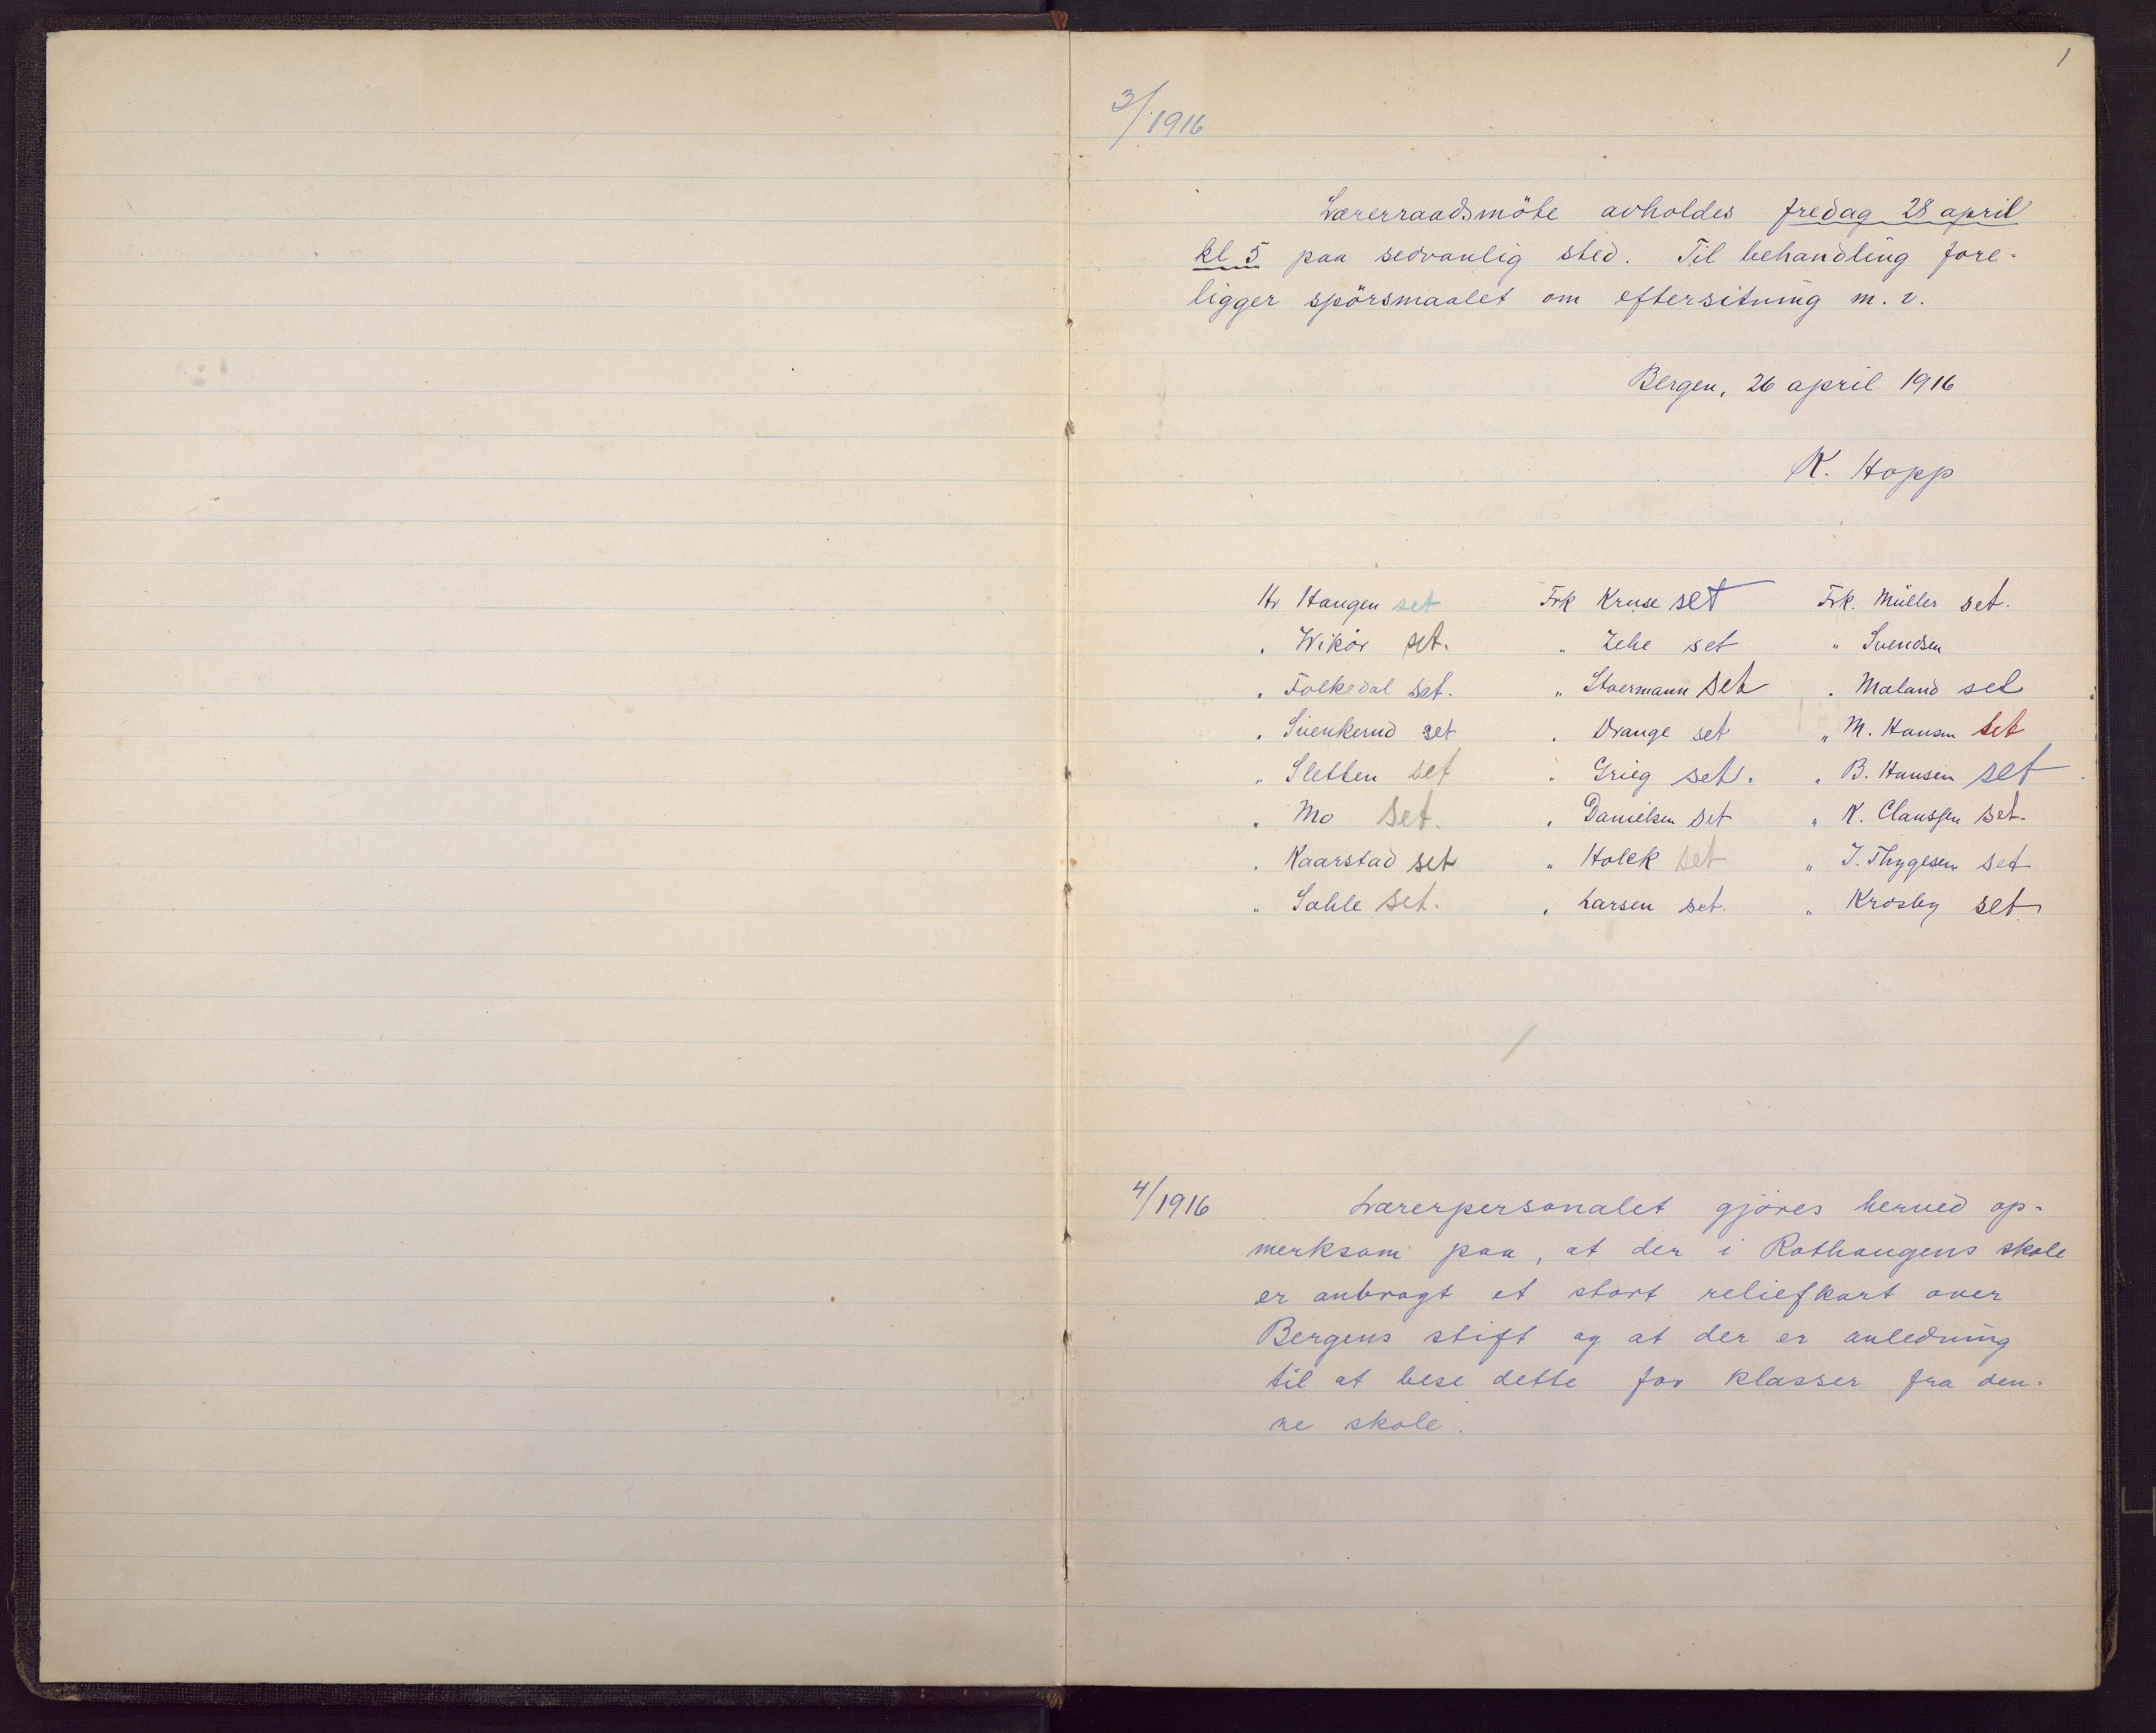 1
3/1916
Lærerraadsmöte avholdes fredag 28 april
kl 5 paa sedvanlig sted. Til behandling fore-
ligger spörsmaalet om eftersitning m. v.
Bergen, 26 april 1916
K. Hopp
Hr Haugen set Frk Kruse set Frk. Müller set.
" Wikør set. " Zehe set " Svendsen
" Folkedal set. " Stoermann set " Mæland set
" Svenkerud set " Drange set " M. Hansen set
" Sletten set " Grieg set. " B. Hansen set
" Mo set. " Danielsen set " K. Claussen set.
" Kaarstad set " Holck set " J. Thygesen set
" Sahle set. " Larsen set. " Krosby set
4/1916 Lærerpersonalet gjöres herved op-
merksom paa, at der i Rothaugens skole
er anbragt et stort reliefkart over
Bergens stift og at der er anledning
til at bese dette for klasser fra den-
ne skole.